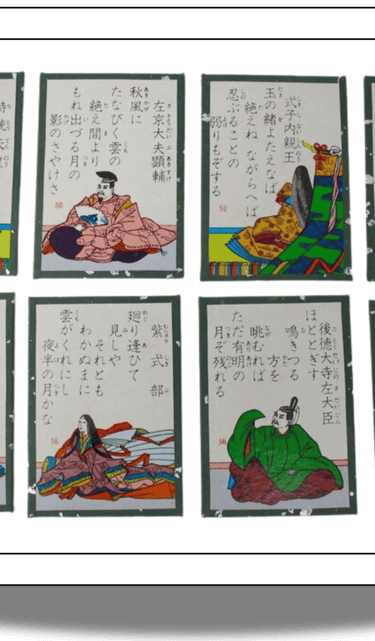 左京大夫顕輔
秋風に
たなびく雲の
絶え間より
もれ出づる月の
影のさやけさ
50
式子内親王
玉の緒よたえなば
絶えね ながらへば
忍ぶることの
弱りもぞする
52
紫式部
廻り逢ひて
見しや
それとも
わかぬまに
雲がくれにし
夜半の月かな
後徳大寺左大臣
ほととぎす
鳴きつる
方を
眺むれば
ただ有明の
月ぞ残れる
56